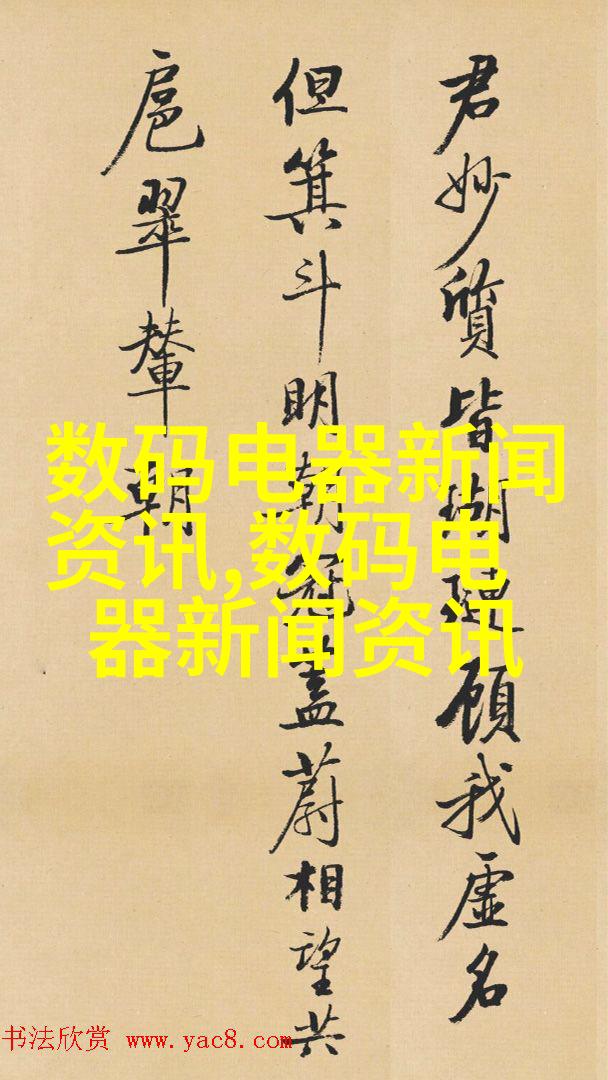 君妙質皆瑚璉顧我虛名
但箕斗明朝冠蓋蔚相望共
扈翠輦朝
数码电器新闻
资讯,数码电
器新闻资讯
书法欣赏 www.yac8.com